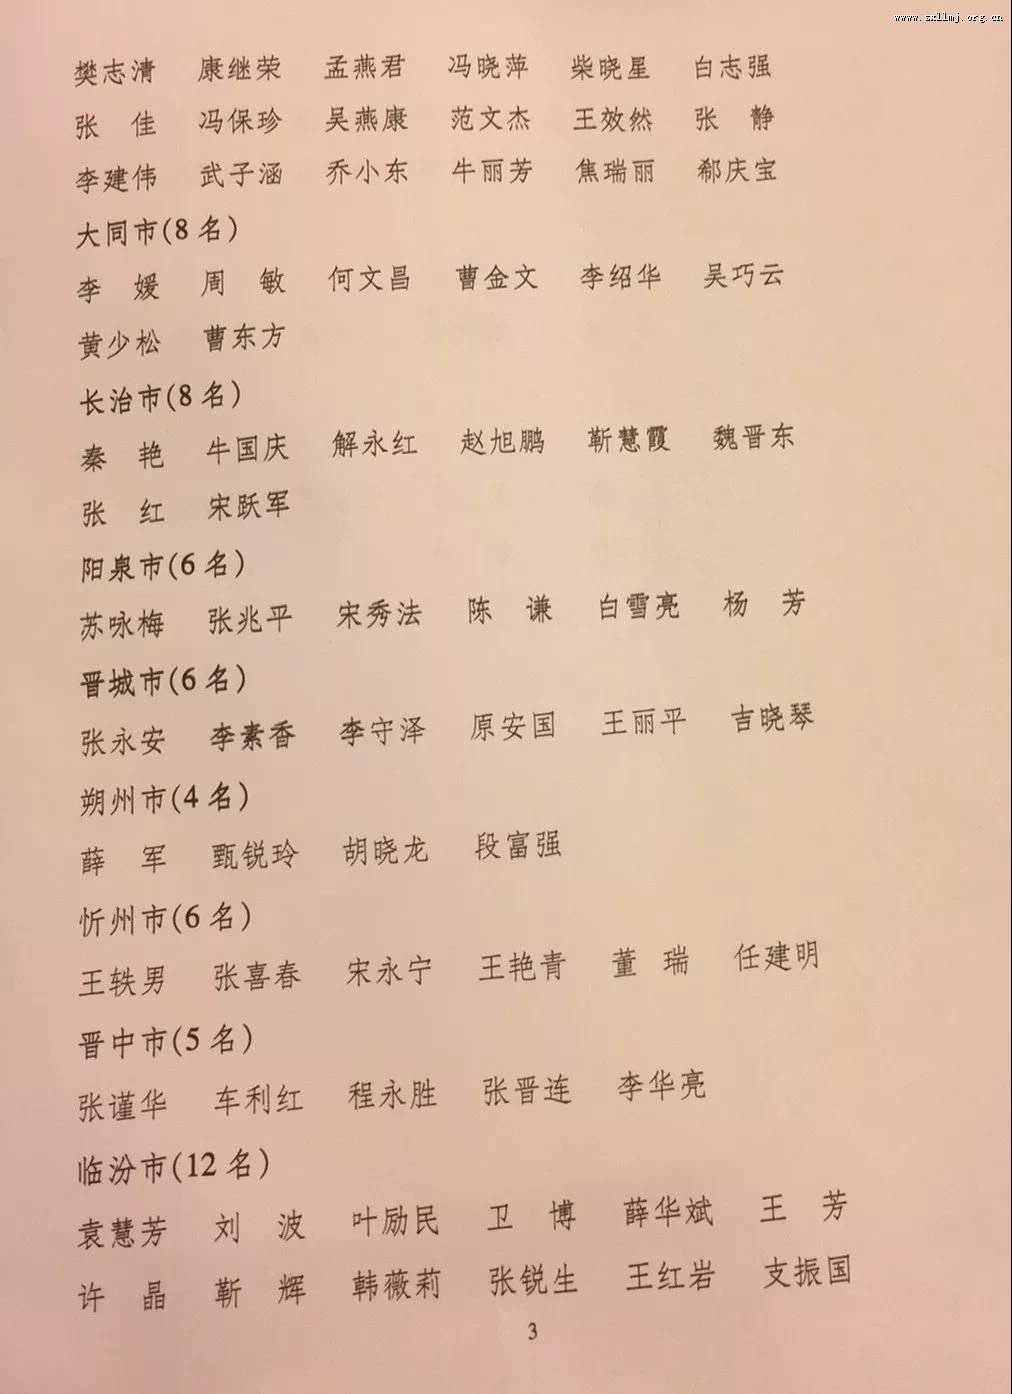 www.sxllmj.org.cn
樊志清 康继荣 孟燕君 冯晓萍 柴晓星 白志强
张 佳 冯保珍 吴燕康 范文杰 王效然 张 静
李建伟 武子涵 乔小东 牛丽芳 焦瑞丽 郗庆宝
大同市(8名)
李 媛 周 敏 何文昌 曹金文 李绍华 吴巧云
黄少松 曹东方
长治市(8名)
秦 艳 牛国庆 解永红 赵旭鹏 靳慧霞 魏晋东
张 红 宋跃军
阳泉市(6名)
苏咏梅 张兆平 宋秀法 陈 谦 白雪亮 杨 芳
晋城市(6名)
张永安 李素香 李守泽 原安国 王丽平 吉晓琴
朔州市(4名)
薛 军 甄锐玲 胡晓龙 段富强
忻州市(6名)
王轶男 张喜春 宋永宁 王艳青 董 瑞 任建明
晋中市(5名)
张谨华 车利红 程永胜 张晋连 李华亮
临汾市(12名)
袁慧芳 刘 波 叶励民 卫 博 薛华斌 王 芳
许 晶 靳 辉 韩薇莉 张锐生 王红岩 支振国
3